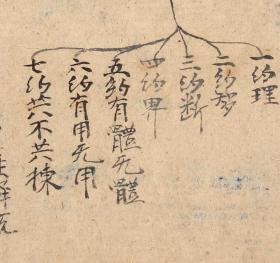 一約理
二約教
三約断
四約界
五約有體无體
六約有用无用
七約共不共揀